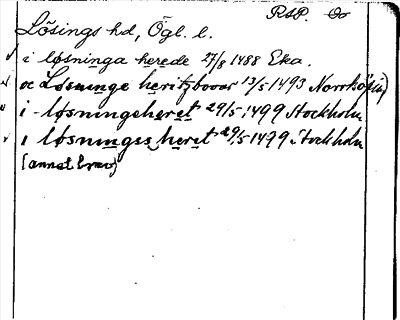 RSP. Oo
Lösings hd, Ögl. l.
i løsninga herede 27/8 1488 Eka.
oc Løsninge heritzboor 13/5 1493 Norrköping)
i løsningeheret 29/5 1499 Stockholm
i løsningss heret 29/5 1499 Stockholm
(annat brev)